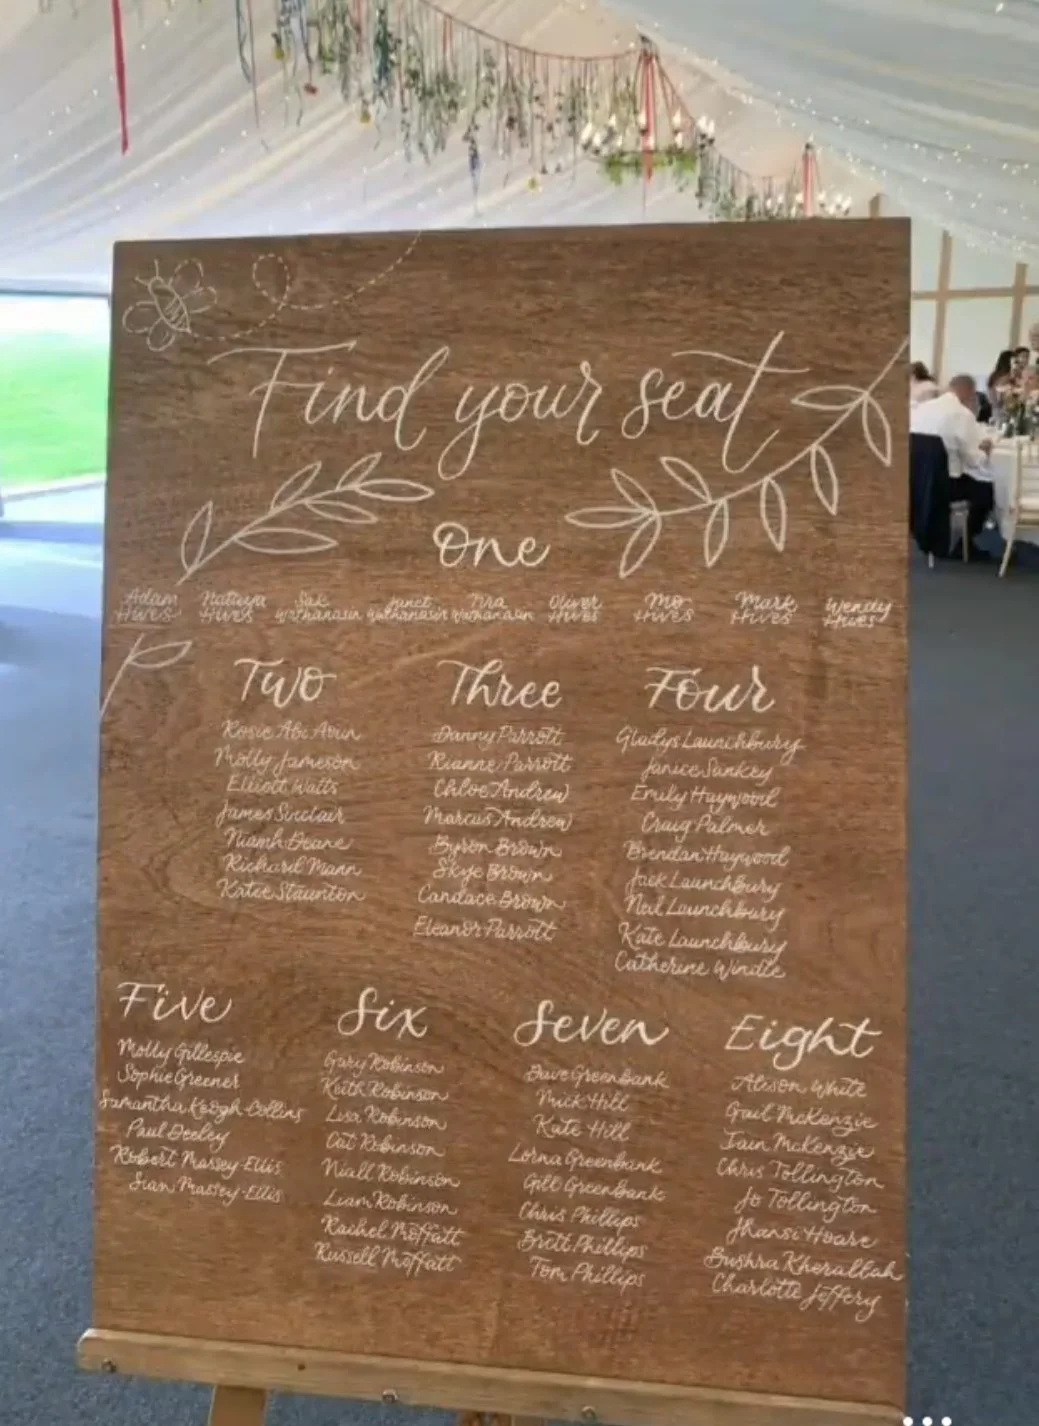 Find your seat
one
Adam Hives
Hives
Sak Wathanasin
Janet Wathanasin
Wathanasin
Oliver Hives
Mo Hives
Mark Hives
Wendy Hives
Two
Rosie Abi Aoun
Molly Jameson
Elliott Watts
James Sinclair
Niamh Deane
Richard Mann
Katie Staunton
Three
Danny Parrott
Rianne Parrott
Chloe Andrew
Marcus Andrew
Byron Brown
Skye Brown
Candace Brown
Eleanor Parrott
Four
Gladys Launchbury
Janice Sankey
Emily Haywood
Craig Palmer
Brendan Haywood
Jack Launchbury
Neil Launchbury
Kate Launchbury
Catherine Windle
Five
Molly Gillespie
Sophie Greener
Samantha Keogh-Collins
Paul Deeley
Robert Massey-Ellis
Sian Massey-Ellis
Six
Gary Robinson
Keith Robinson
Lisa Robinson
Cat Robinson
Niall Robinson
Liam Robinson
Rachel Moffatt
Russell Moffatt
Seven
Dave Greenbank
Mick Hill
Kate Hill
Lorna Greenbank
Gill Greenbank
Chris Phillips
Britt Phillips
Tom Phillips
Eight
Alison White
Gail McKenzie
Iain McKenzie
Chris Tollington
Jo Tollington
Jhansi Hoare
Bushra Kherallah
Charlotte Jeffery